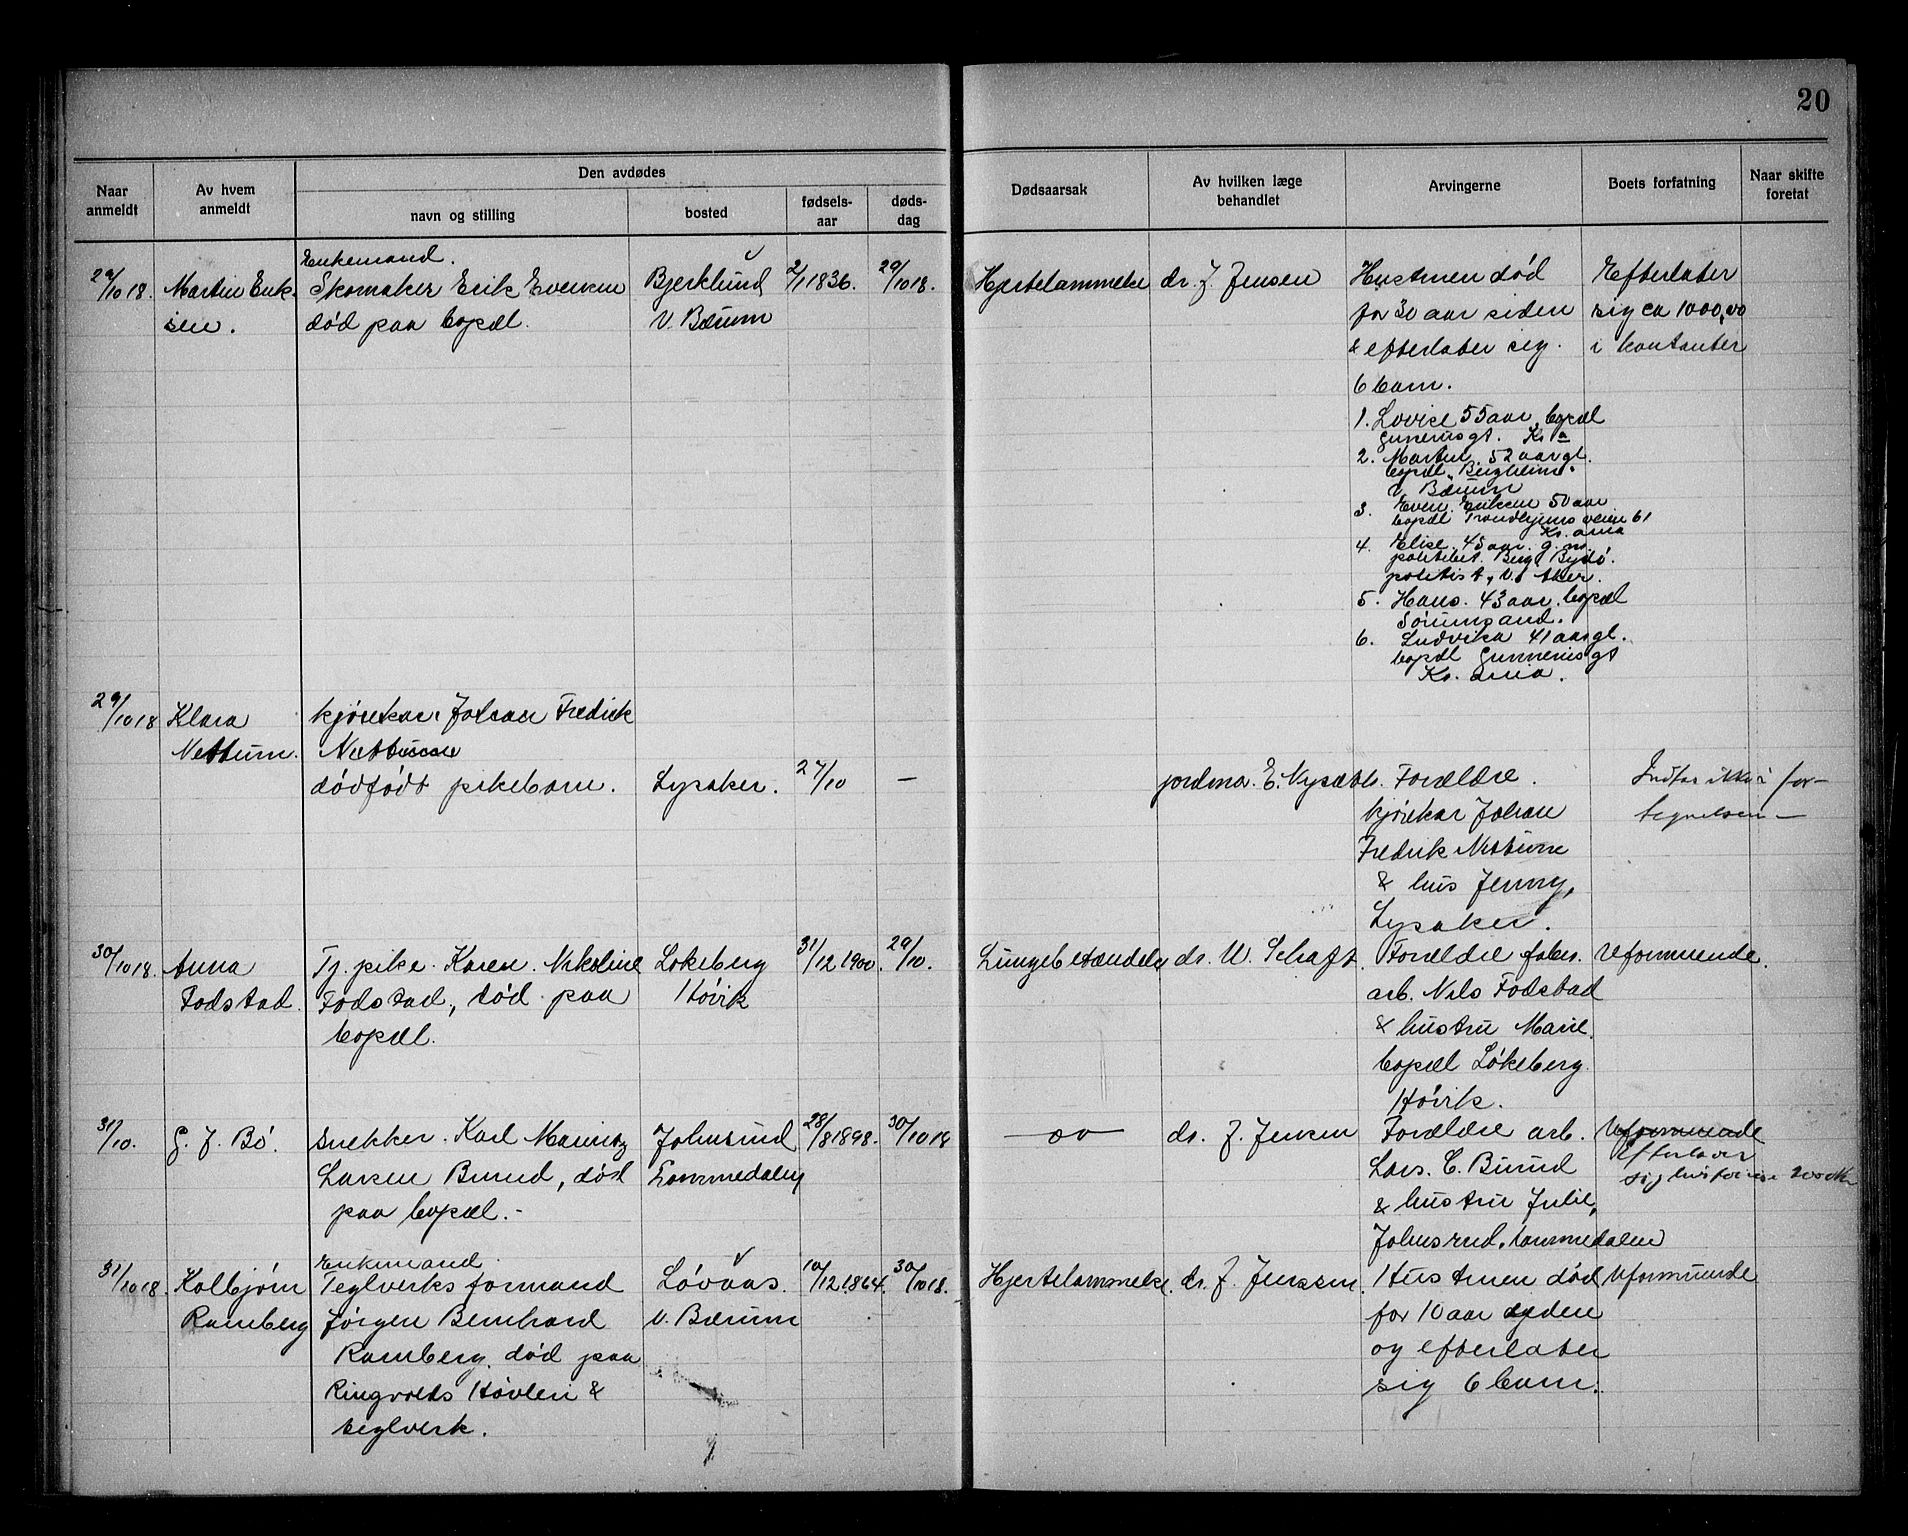 20
Den avdødes
Naar anmeldt
Av hvem anmeldt
navn og stilling
bosted
fødsels-aar
døds-dag
Dødsaarsak
Av hvilken læge behandlet
Arvingerne
Boets forfatning
Naar skifte foretat
29/10 18.
Martin Erik-
sen.
Enkemand.
Skomaker Erik Evensen
død paa bopæl.
Bjerklund
V. Bærum
2/1 1836.
29/10 18.
Hjertelammelse
dr. J. Jensen
Hustruen død
for 30 aar siden
& efterlater sig
6 barn.
1. Lovise 55 aar, bopæl
Gunnerusgt. Kr. a
2. Martin 52 aar gl.
bopæl "Bergheim"
V. Bærum
3. Even Eriksen 50 aar
bopæl Trondhjemsveien 61
Kr. ania
4. Elise. 45 aar. g. m.
politibet. Berg, Bygdø
politist, V. Aker.
5. Hans. 43 aar. bopæl
Sørumsand.
6. Ludvika 41 aar gl.
bopæl Gunnerusgt
Kr. ania.
Efterlater
sig ca 1000,00
i kontanter
29/10 18
Klara
Nettum.
kjørekar Johan Fredrik
Nettum
dødfødt pikebarn.
Lysaker.
27/10
—
jordmor. E. Nysæth.
Forældre.
kjørekar Johan
Fredrik Nettum
& hus Jenny,
Lysaker.
Indføres ikke i for-
tegnelsen —
30/10 18.
Anna
Fodstad.
Tj. pike. Karen Nikoline
Fodstad, død paa
bopæl.
Løkeberg
Høvik
31/12 1900.
29/10.
Lungebetændelse
dr. W. Schaft.
Forældre fabr.
arb. Nils Fodstad
& hustru Marie
bopæl Løkeberg
Høvik.
Uformuende.
31/10.
G. J. Bø.
Snekker Karl Mauritz
Larsen Burud, død
paa bopæl.-
Johnsrud
Lommedalen
28/8 1898.
30/10 18
— " —
dr. J. Jensen
Forældre arb.
Lars. C. Burud
& hustru Julie,
Johnsrud, Lommedalen
Uformuende
efterlater
sig
31/10 18.
Kolbjørn
Ramberg
Enkemand
Teglverksformand
Jørgen Bernhard
Ramberg, død paa
Ringvolds Høvleri &
teglverk.
Løvaas.
V. Bærum
10/12 1864.
30/10 18.
Hjertelammelse.
dr. J. Jenssen.
Hustruen død
for 10 aar siden
og efterlater
sig 6 barn.
Uformuende